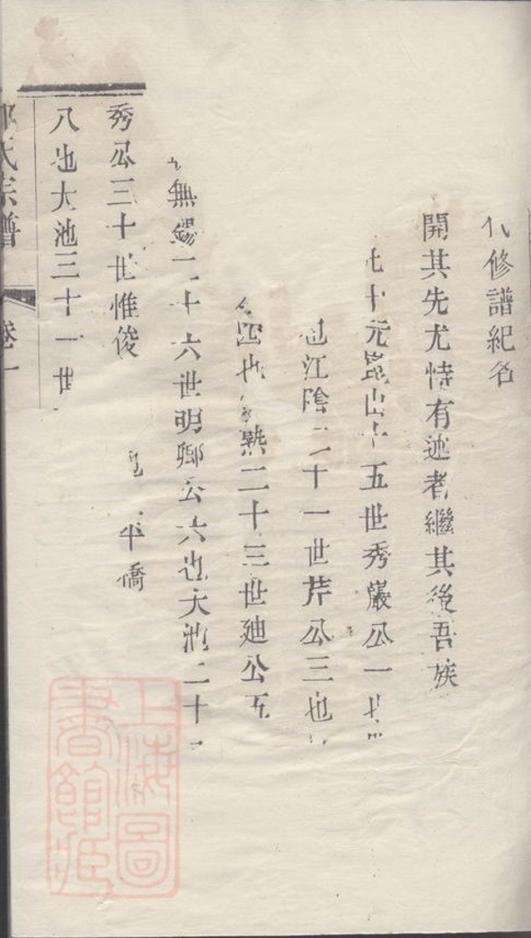 修譜紀名
開其先尤恃有述者繼其後吾族
七十元崑山十五世秀巖公一也
江陰二十一世芹公三也
四也 熟二十三世廸公五
無錫二十六世明卿公六也大池二十
平橋
秀公三十世惟俊
八也大池三十一世
氏宗譜 卷一
上海圖書館